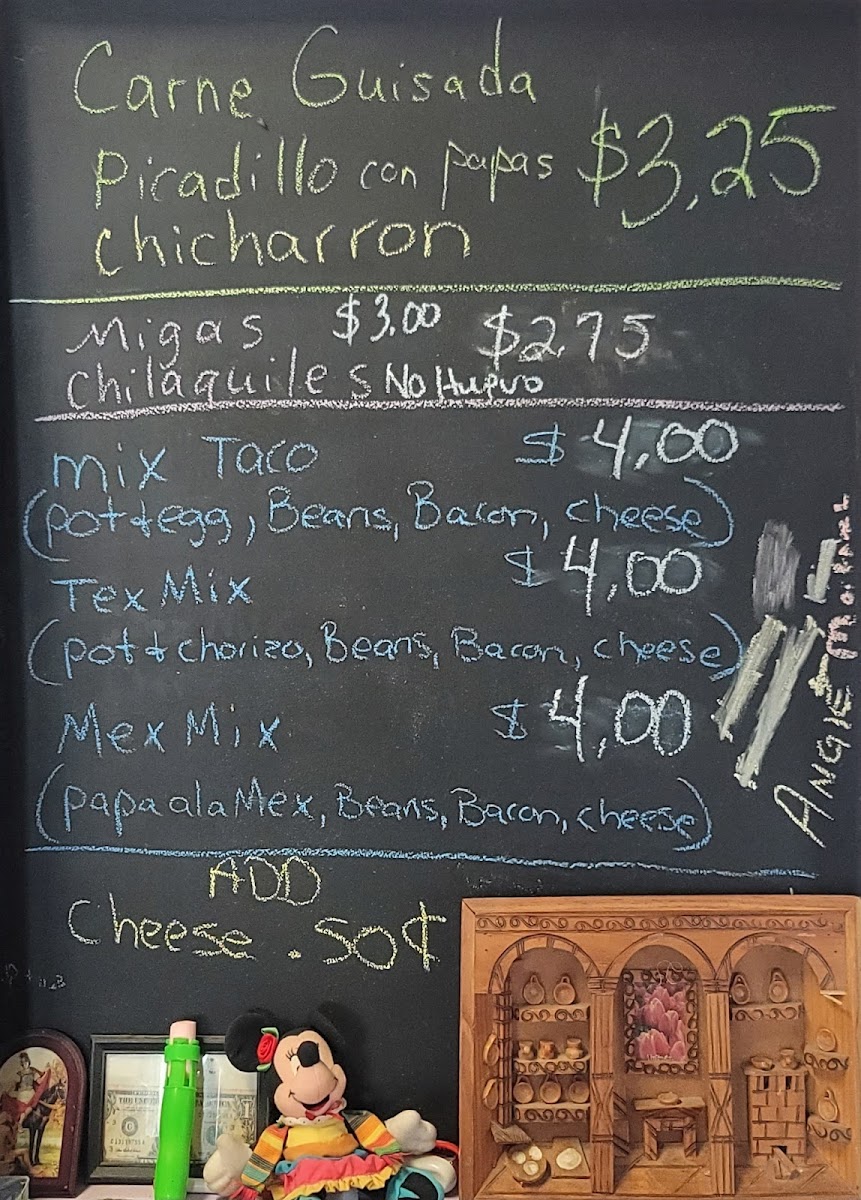 Carne Guisada
Picadillo con papas $3,25
chicharron
Migas $3.00 $2.75
chilaquiles No Huevo
mix Taco $4,00
(pot+egg, Beans, Bacon, cheese)
Tex Mix $4,00
(pot+chorizo, Beans, Bacon, cheese)
Mex Mix $4,00
(papa ala Mex, Beans, Bacon, cheese)
ADD
Cheese .50¢